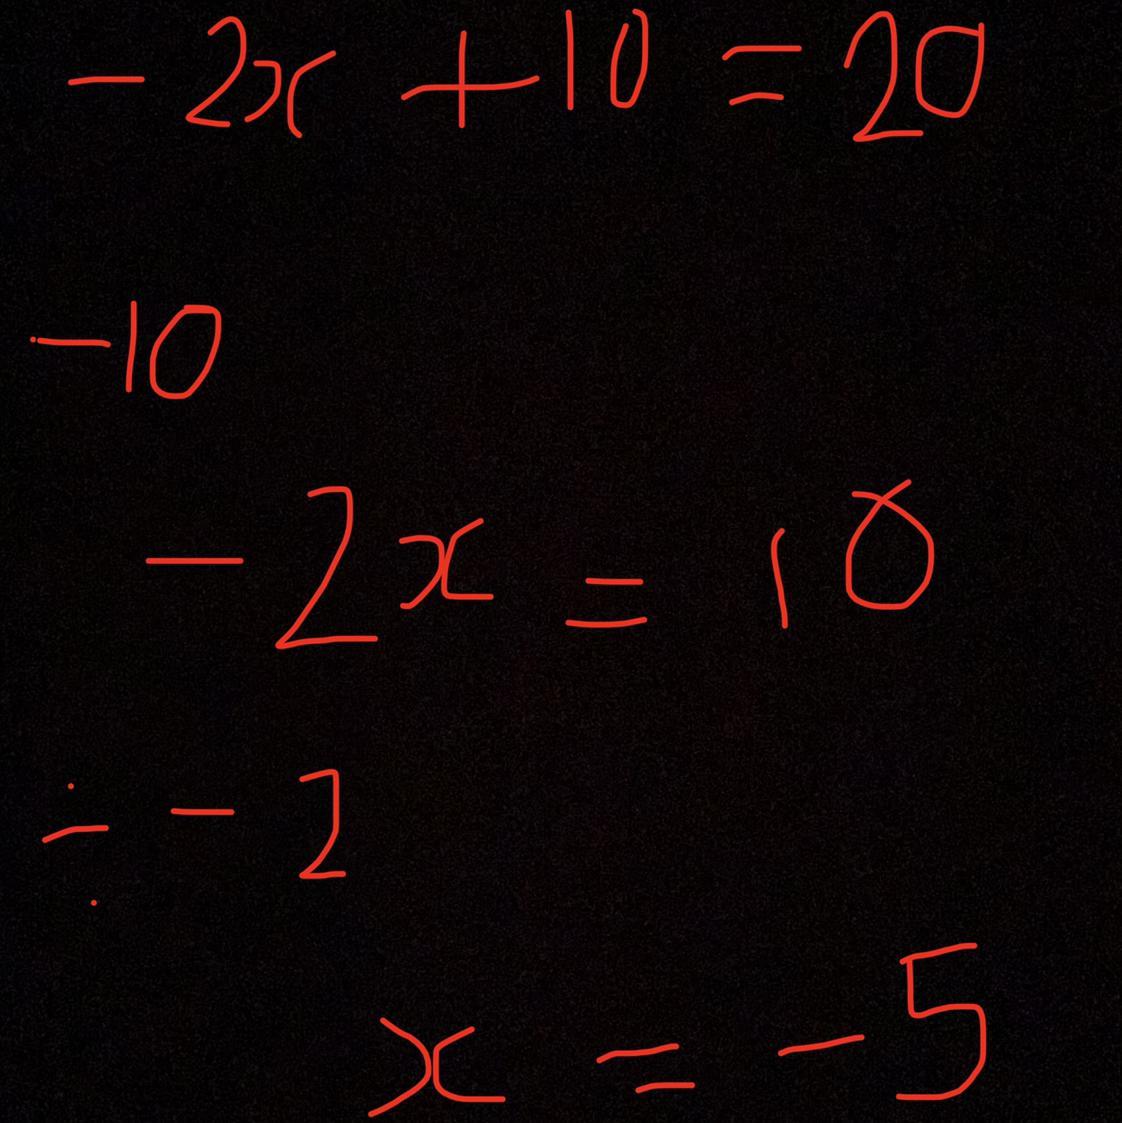 -2x + 10 = 20
-10
-2x = 10
÷ -2
x = -5